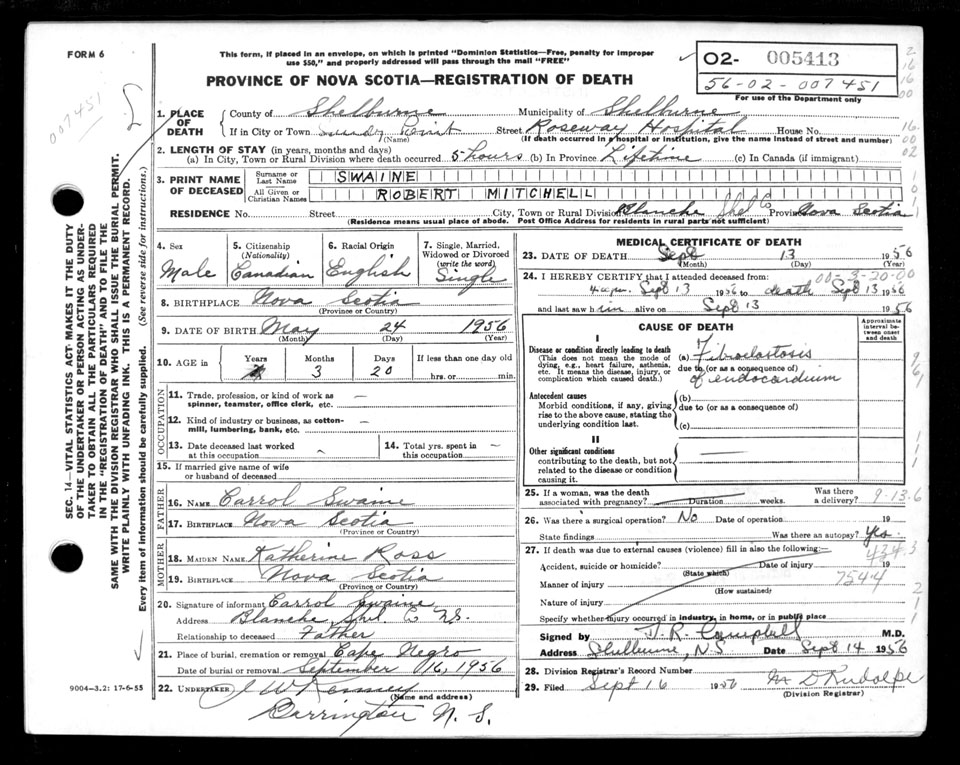 FORM 6
This form, if placed in an envelope, on which is printed "Dominion Statistics—Free, penalty for improper
use $50," and properly addressed will pass through the mail "FREE"
PROVINCE OF NOVA SCOTIA—REGISTRATION OF DEATH
O2- 005413
56-02-007451
For use of the Department only
007451
1. PLACE OF DEATH
County of Shelburne Municipality of Shelburne
If in City or Town Sandy Point Street Roseway Hospital House No.
(Name) (If death occurred in a hospital or institution, give the name instead of street and number)
2. LENGTH OF STAY (in years, months and days)
(a) In City, Town or Rural Division where death occurred 5 hours (b) In Province Lifetime (c) In Canada (if immigrant)
3. PRINT NAME OF DECEASED
Surname or Last Name SWAINE
All Given or Christian Names ROBERT MITCHELL
RESIDENCE No. Street City, Town or Rural Division Blanche Shel Co Province Nova Scotia
(Residence means usual place of abode. Post Office Address for residents in rural parts not sufficient)
4. Sex
Male
5. Citizenship
(Nationality)
Canadian
6. Racial Origin
English
7. Single, Married, Widowed or Divorced
(write the word)
Single
8. BIRTHPLACE Nova Scotia
(Province or Country)
9. DATE OF BIRTH May 24 1956
(Month) (Day) (Year)
10. AGE in Years Months Days If less than one day old
3 20 hrs. or min.
OCCUPATION
11. Trade, profession, or kind of work as
spinner, teamster, office clerk, etc. —
12. Kind of industry or business, as cotton-
mill, lumbering, bank, etc. —
13. Date deceased last worked
at this occupation
14. Total yrs. spent in
this occupation —
15. If married give name of wife
or husband of deceased
FATHER
16. NAME Carrol Swaine
17. BIRTHPLACE Nova Scotia
(Province or Country)
MOTHER
18. MAIDEN NAME Katherine Ross
19. BIRTHPLACE Nova Scotia
(Province or Country)
20. Signature of informant Carrol Swaine
Address Blanche Shel. Co NS.
Relationship to deceased Father
21. Place of burial, cremation or removal Cape Negro
Date of burial or removal September 16, 1956
22. UNDERTAKER J W Kenney
(Name and address)
Barrington N. S.
9004-3.2: 17-6-55
MEDICAL CERTIFICATE OF DEATH
23. DATE OF DEATH Sept 13 1956
(Month) (Day)
24. I HEREBY CERTIFY that I attended deceased from:
00-3-20-00
4:00 pm. Sept 13 1956 to death Sept 13 1956
and last saw him alive on Sept 13 1956
CAUSE OF DEATH
Approximate interval between onset and death
I
Disease or condition directly leading to death
(This does not mean the mode of dying, e.g., heart failure, asthenia, etc. It means the disease, injury, or complication which caused death.
(a) Fibroelastosis
due to (or as a consequence of)
of endocardium
Antecedent causes
Morbid conditions, if any, giving rise to the above cause, stating the underlying condition last.
(b)
due to (or as a consequence of)
(c)
II
Other significant conditions
contributing to the death, but not related to the disease or condition causing it.
25. If a woman, was the death
associated with pregnancy? Duration weeks. Was there a delivery?
9-13-6
26. Was there a surgical operation? No Date of operation 19
State findings Was there an autopsy? Yes.
27. If death was due to external causes (violence) fill in also the following:
434.3
Accident, suicide or homicide? Date of injury 19
(State which)
754.4
Manner of injury
(How sustained)
Nature of injury
Specify whether injury occurred in industry, in home, or in public place
Signed by J. R. Campbell M.D.
Address Shelburne, N.S Date Sept 14 1956
28. Division Registrar's Record Number
29. Filed Sept 16 1956 D Rudolph
(Division Registrar)
SEC. 14—VITAL STATISTICS ACT MAKES IT THE DUTY
OF THE UNDERTAKER OR PERSON ACTING AS UNDER-
TAKER TO OBTAIN ALL THE PARTICULARS REQUIRED
IN THE "REGISTRATION OF DEATH" AND TO FILE THE
SAME WITH THE DIVISION REGISTRAR WHO SHALL ISSUE THE BURIAL PERMIT.
WRITE PLAINLY WITH UNFADING INK. THIS IS A PERMANENT RECORD.
Every item of information should be carefully supplied. (See reverse side for instructions.)